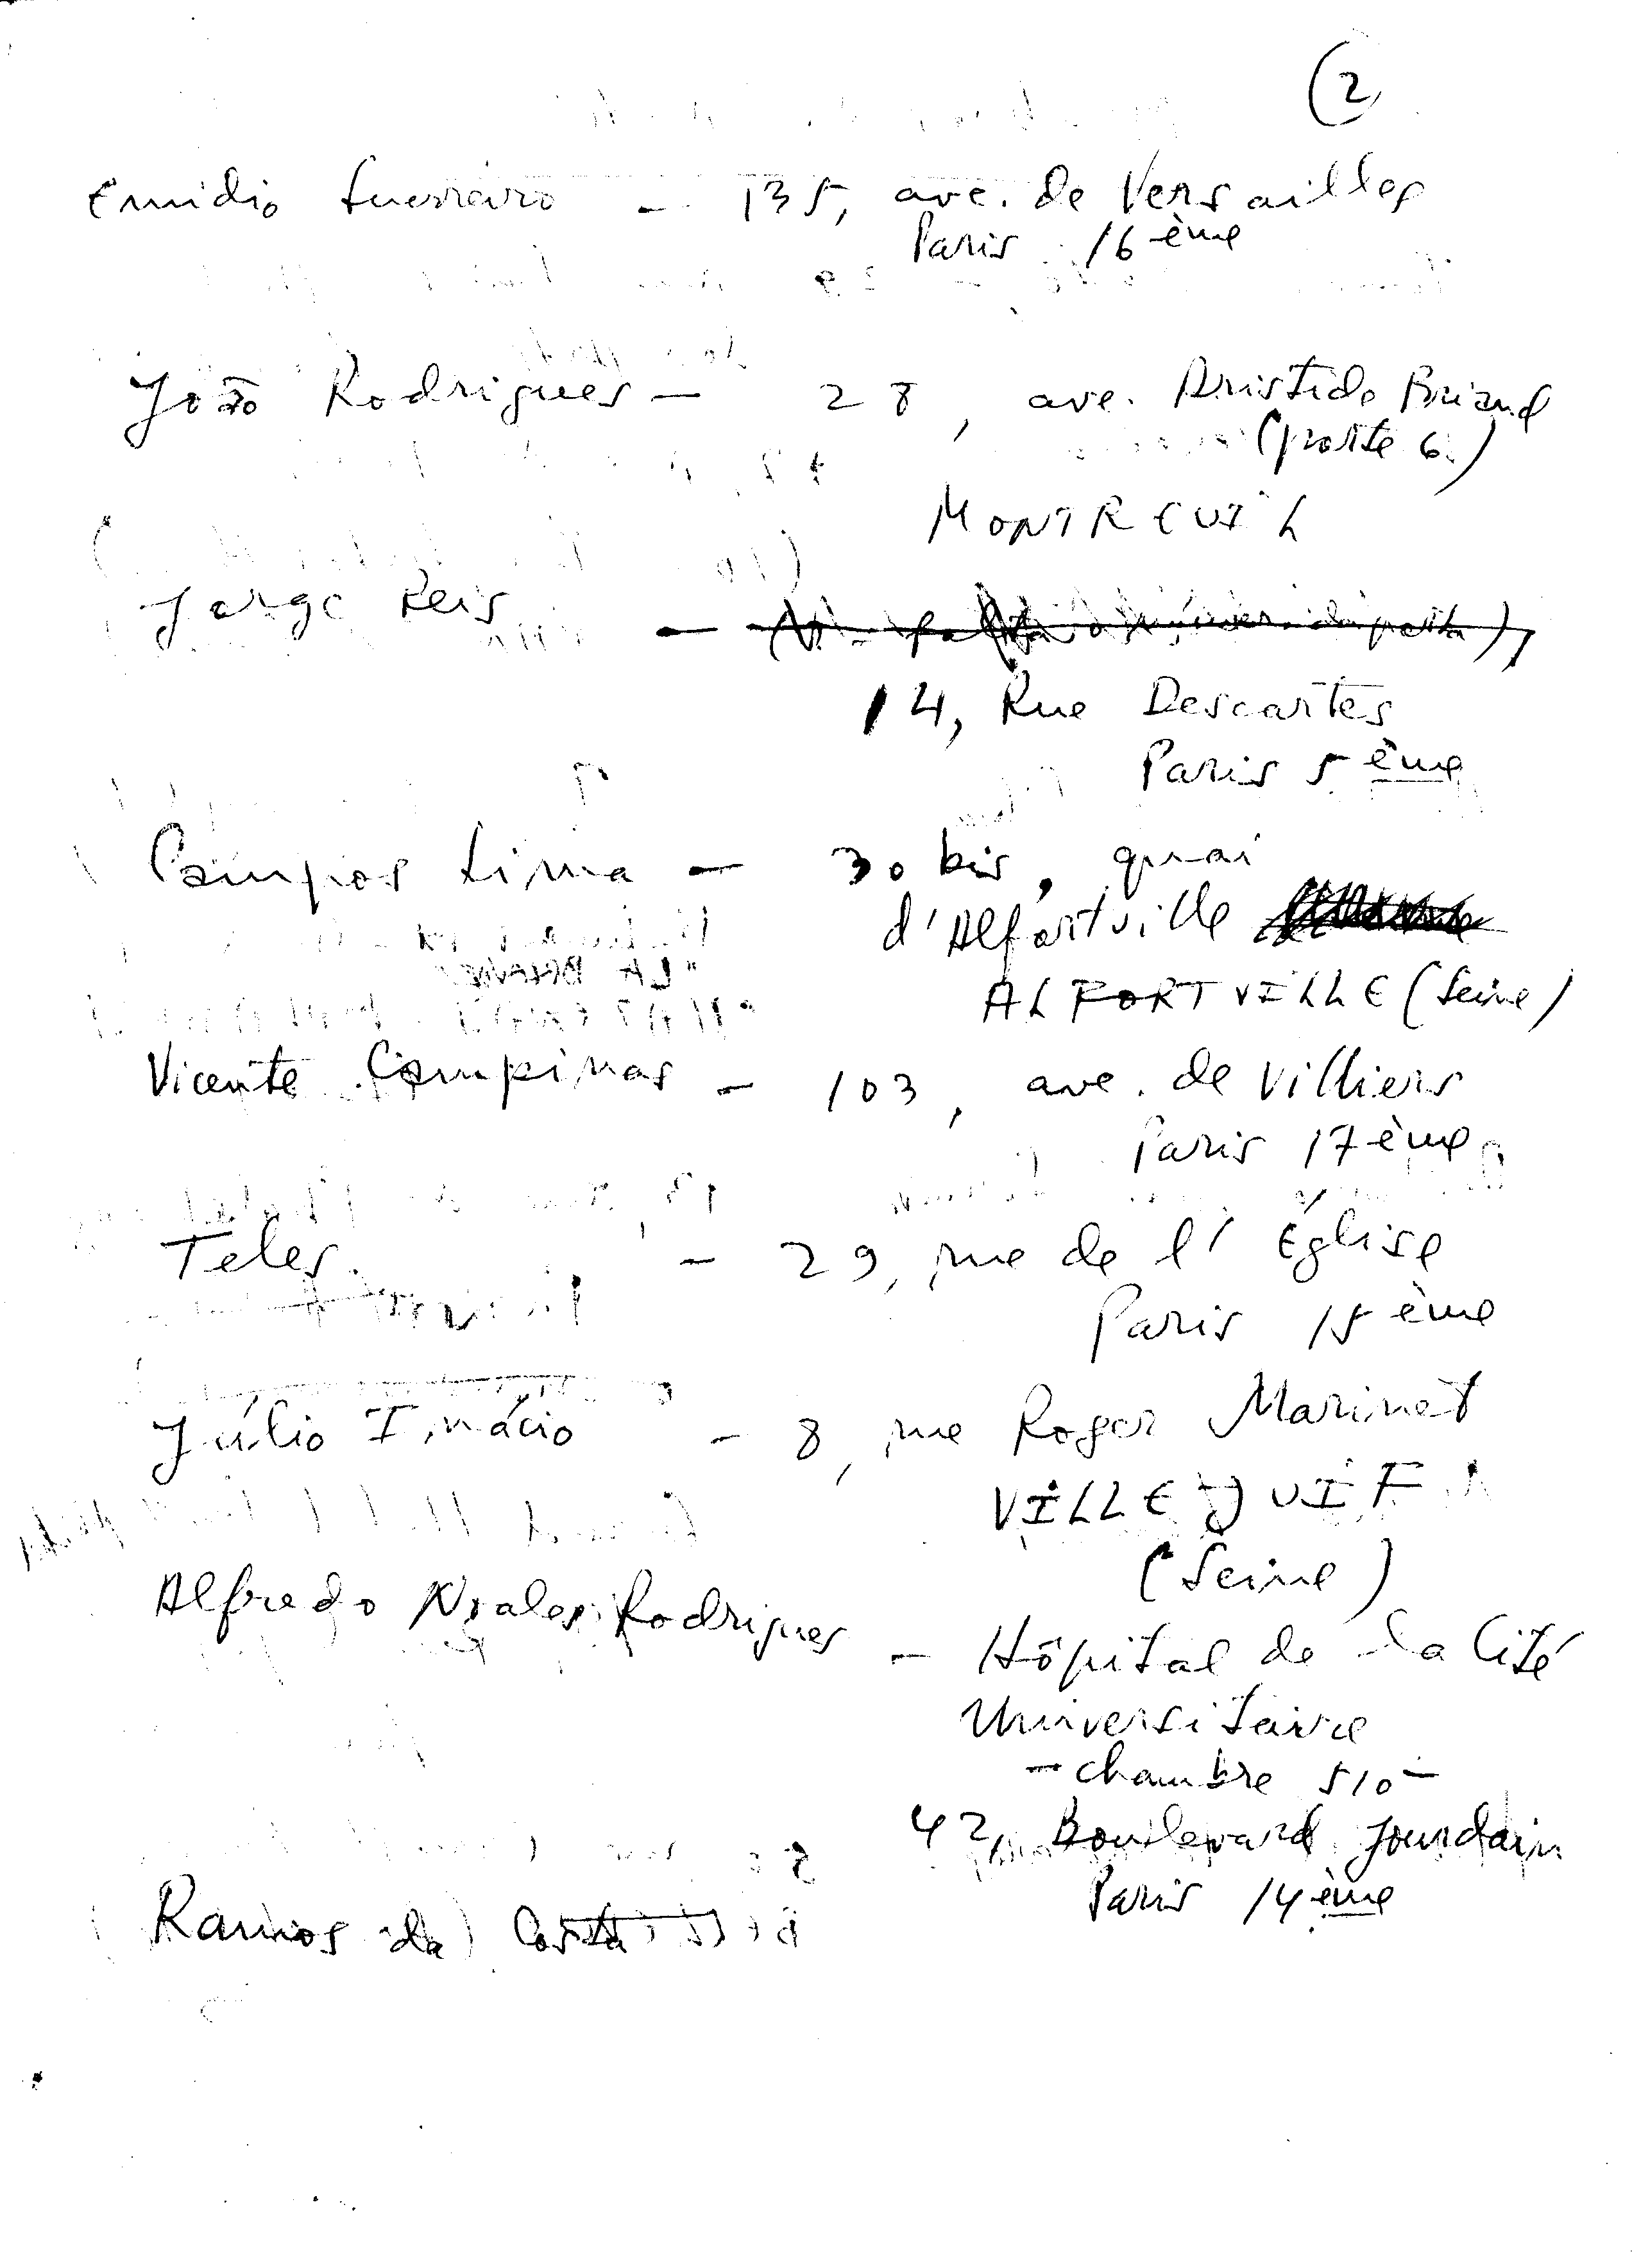 (2
Emidio Guerreiro — 135, ave. de Versailles
Paris 16ème
João Rodrigues — 28, ave. Aristide Briand
(porte 6)
MONTREUIL
Jorge Reis —
14, Rue Descartes
Paris 5ème
Campos Lima — 30 bis, quai
d'Alfortville
ALFORTVILLE (Seine)
Vicente Campinas — 103, ave. de Villiers
Paris 17ème
Teles — 29, rue de l'Église
Paris 15ème
Júlio Inácio — 8, rue Roger Marinet
VILLEJUIF
(Seine)
Alfredo Noales Rodrigues — Hôpital de la Cité
Universitaire
— chambre 510 —
42, Boulevard Jourdain
Paris 14ème
Ramos da Costa